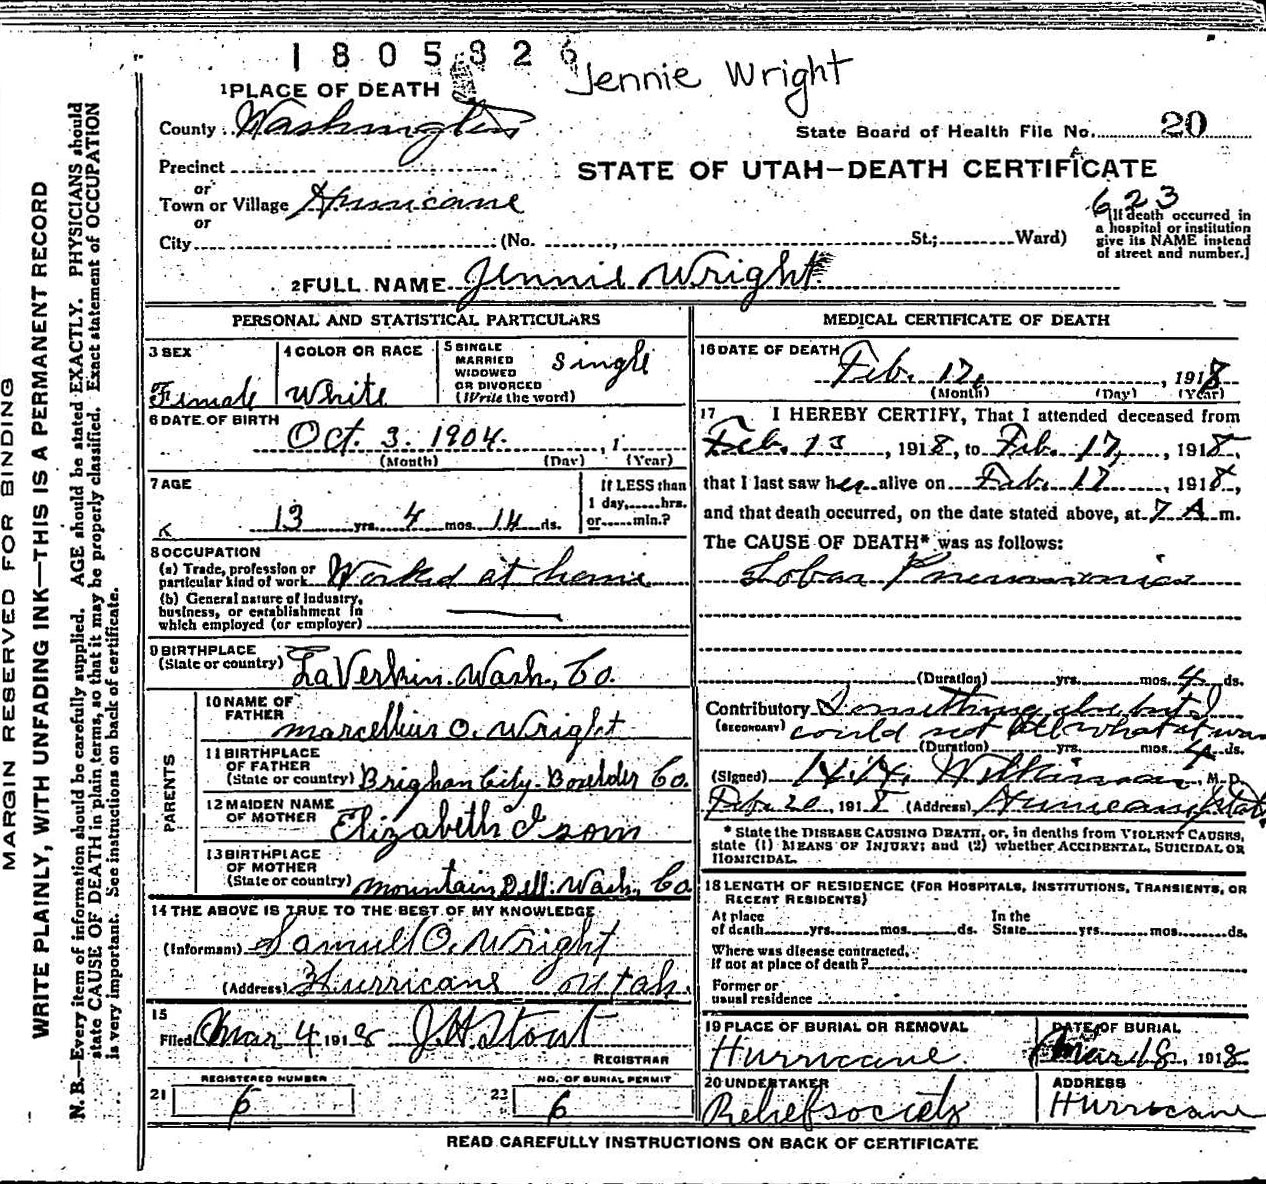 1805326
Jennie Wright
1 PLACE OF DEATH
County Washington
State Board of Health File No. 20
Precinct
STATE OF UTAH—DEATH CERTIFICATE
or
Town or Village Hurricane
623
or
City (No. , St.; Ward)
[If death occurred in
a hospital or institution
give its NAME instead
of street and number.]
2 FULL NAME Jennie Wright
PERSONAL AND STATISTICAL PARTICULARS
3 SEX
Female
4 COLOR OR RACE
White
5 SINGLE
MARRIED
WIDOWED
OR DIVORCED
(Write the word)
Single
6 DATE OF BIRTH
Oct. 3. 1904. , 1
(Month) (Day) (Year)
7 AGE
13 yrs. 4 mos. 14 ds.
If LESS than
1 day, hrs.
or min.?
8 OCCUPATION
(a) Trade, profession or
particular kind of work Worked at home
(b) General nature of industry,
business, or establishment in
which employed (or employer)
9 BIRTHPLACE
(State or country) LaVerkin. Wash. Co.
PARENTS
10 NAME OF
FATHER
Marcellius O. Wright
11 BIRTHPLACE
OF FATHER
(State or country) Brighan City. Boulder Co.
12 MAIDEN NAME
OF MOTHER
Elizabeth Isom
13 BIRTHPLACE
OF MOTHER
(State or country) Mountain Dell. Wash. Co
14 THE ABOVE IS TRUE TO THE BEST OF MY KNOWLEDGE
(Informant) Samuel O. Wright
(Address) Hurricane Utah.
15
Filed Mar 4 1918 J. H. Stout
REGISTRAR
REGISTERED NUMBER
21 6
NO. OF BURIAL PERMIT
22 6
MEDICAL CERTIFICATE OF DEATH
16 DATE OF DEATH
Feb. 17, , 1918
(Month) (Day) (Year)
17 I HEREBY CERTIFY, That I attended deceased from
Feb. 13 , 1918, to Feb. 17, , 1918,
that I last saw her alive on Feb. 17 , 1918,
and that death occurred, on the date stated above, at 7 A m.
The CAUSE OF DEATH* was as follows:
Lobar Pneumonia
(Duration) yrs. mos. 4 ds.
Contributory Something else but I
(SECONDARY) could not tell what it was
(Duration) yrs. mos. 4 ds.
(Signed) H. H. Wilkinson, M.D.
Feb. 20 , 1918 (Address) Hurricane, Utah.
* State the DISEASE CAUSING DEATH, or, in deaths from VIOLENT CAUSES,
state (1) MEANS OF INJURY; and (2) whether ACCIDENTAL, SUICIDAL OR
HOMICIDAL.
18 LENGTH OF RESIDENCE (FOR HOSPITALS, INSTITUTIONS, TRANSIENTS, OR
RECENT RESIDENTS)
At place
of death yrs. mos. ds.
In the
State yrs. mos. ds.
Where was disease contracted,
If not at place of death?
Former or
usual residence
19 PLACE OF BURIAL OR REMOVAL
Hurricane.
DATE OF BURIAL
Mar 18, 1918
20 UNDERTAKER
Relief society
ADDRESS
Hurricane
READ CAREFULLY INSTRUCTIONS ON BACK OF CERTIFICATE
MARGIN RESERVED FOR BINDING
WRITE PLAINLY, WITH UNFADING INK—THIS IS A PERMANENT RECORD
N. B.—Every item of information should be carefully supplied. AGE should be stated EXACTLY. PHYSICIANS should
state CAUSE OF DEATH in plain terms, so that it may be properly classified. Exact statement of OCCUPATION
is very important. See instructions on back of certificate.